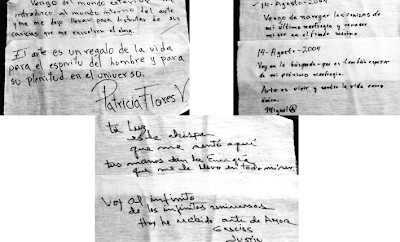 Vengo del mundo exterior
introduzco al mundo interior del arte
y me dejo llevar para disfrutar de sus
caricias que me envuelven el alma.
El arte es un regalo de la vida
para el espíritu del hombre y para
su plenitud en el universo.
Patricia Flores V.
14-Agosto-2004
Vengo de navegar las cenizas de
mi último naufragio y renacer
14-Agosto-2004
Voy en la búsqueda que es también espera
de mi próximo naufragio.
Arte es vivir y sentir la vida como
única.
Miguel
tu Luz
este chispa
que me
tus manos dan la Energía
que me lleva en todo
Voy al infinito
de los infinitos
Hoy he recibido arte de Amor
Gracias
Justin